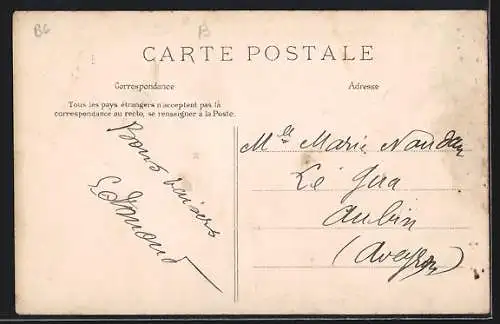 B6
B
CARTE POSTALE
Correspondance
Adresse
Tous les pays étrangers n'acceptent pas là
correspondance au recto, se renseigner à la Poste.
Bons baisers
Edmond
Mlle Marie
Le Gua
Aubin
(Aveyron)